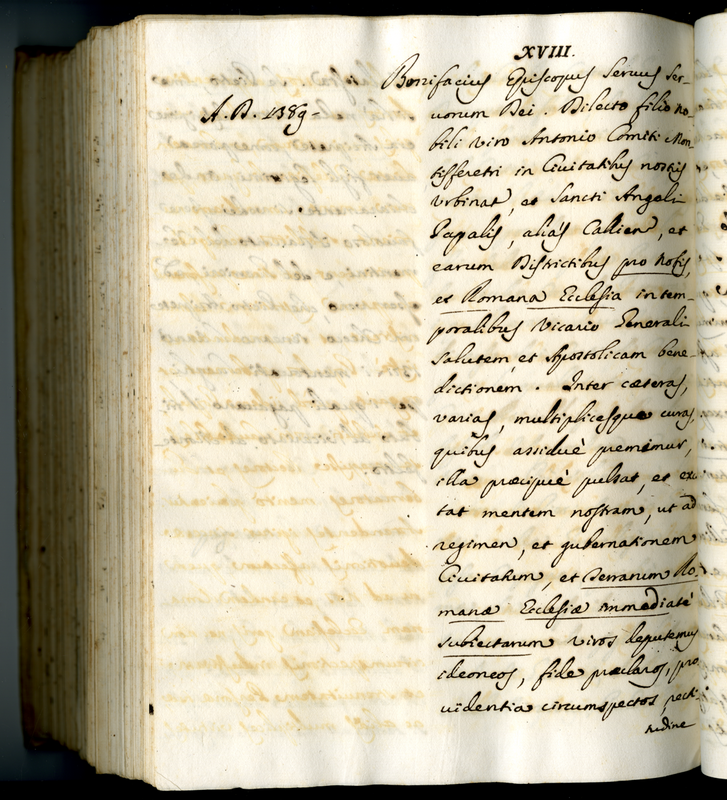 XVIII.
Bonifacius Episcopus Servus Ser-
A. D. 1389-
uorum Dei. Dilecto filio no-
bili viro Antonio Comiti Mon-
tifferetri in Ciuitatibus nostris
Vrbinat, et Sancti Angeli
Papalis, alias Callien, et
earum Districtibus pro Nobis,
et Romana Ecclesia in tem-
poralibus Vicario Generali
Salutem, et Apostolicam bene-
dictionem. Inter cæteras,
varias, multiplicesque curas,
quibus assiduè premimur,
illa præcipuè pulsat, et exci
tat mentem nostram, ut ad
regimen, et gubernationem
Ciuitatum, et Terrarum Ro-
manæ Ecclesiæ immediatè
subiectarum viros deputemus
ideoneos, fide præclaros, pro
uidentia circumspectos, recti-
tudine